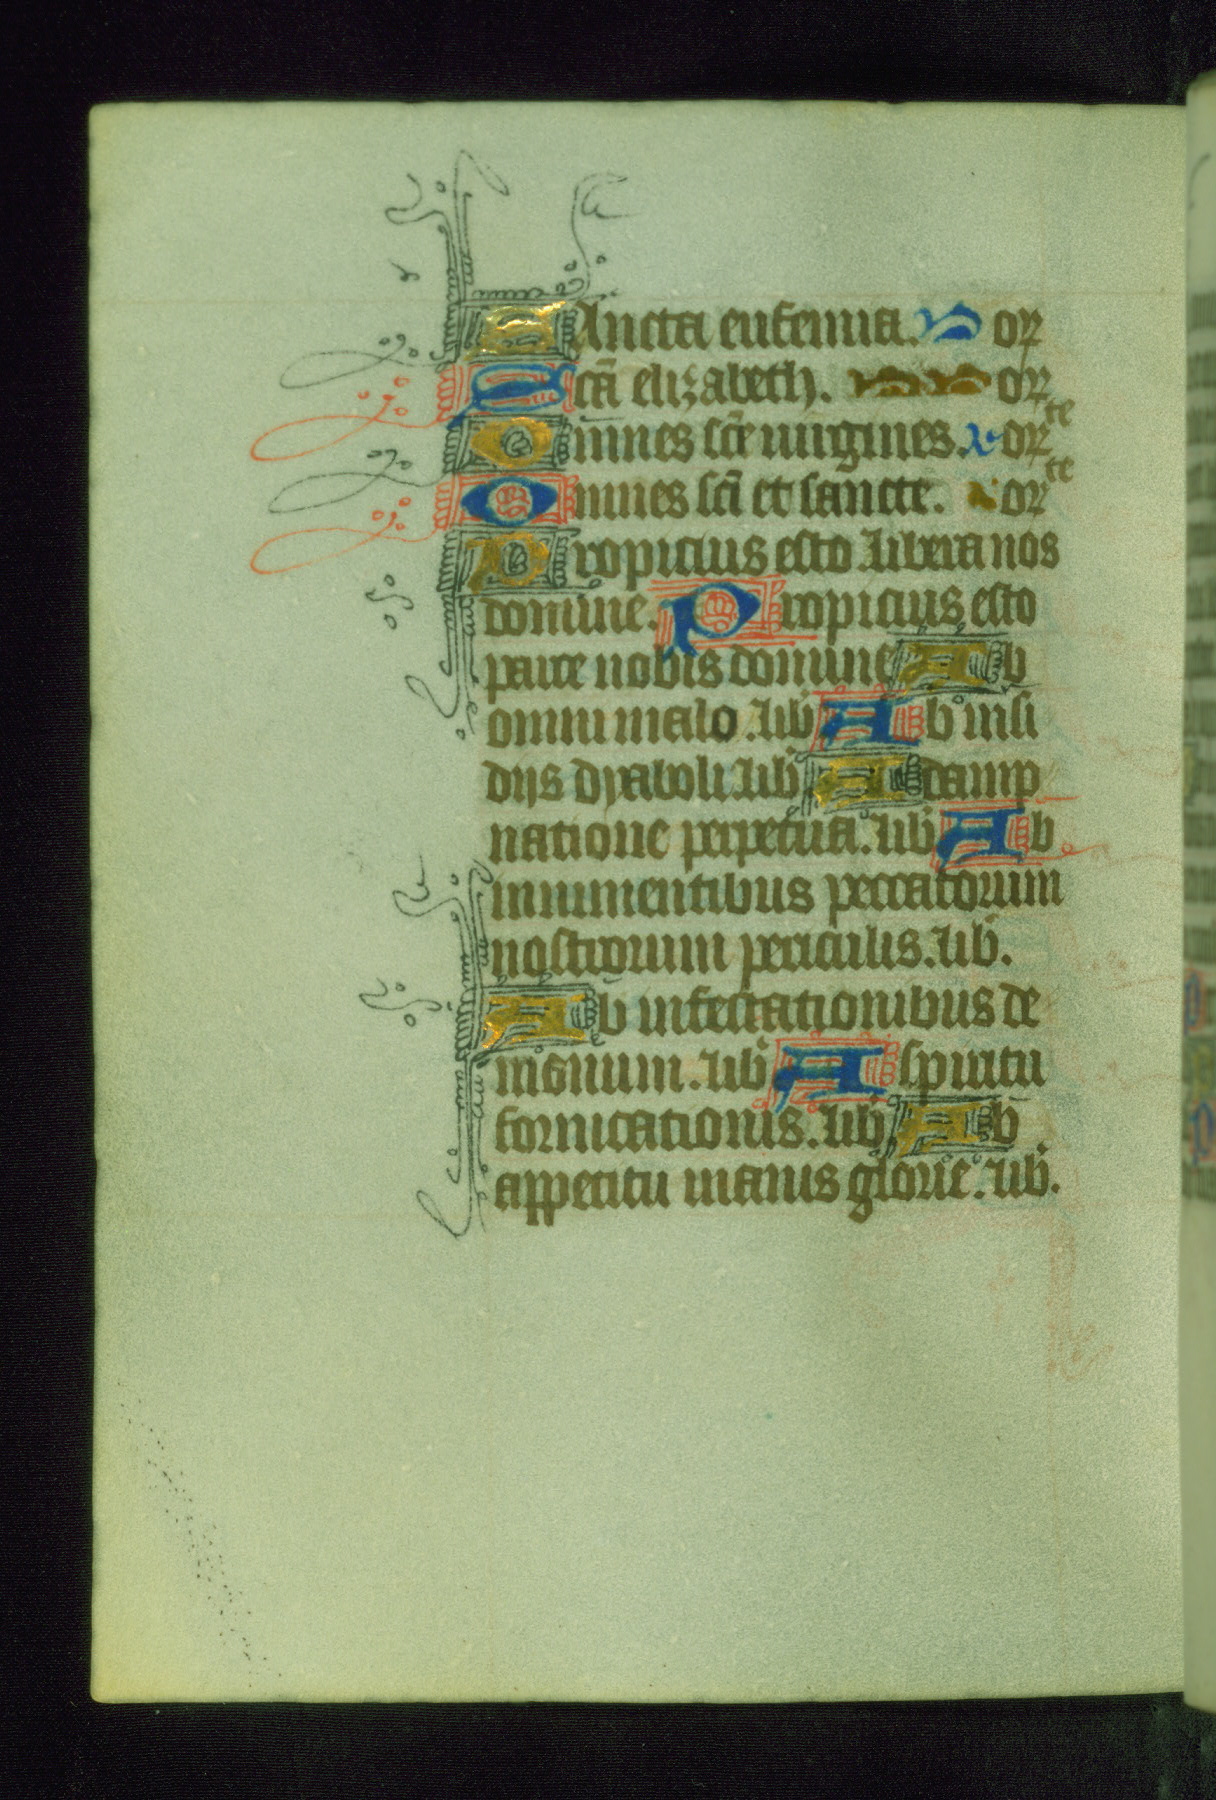 SAncta eufemia. or
Sctā elizabeth. or
Omnes scē uirgines. orte
Omnes scī et sancte. orte
Propicius esto. libera nos
domine. Propicius esto
parce nobis domine Ab
omni malo. lib Ab insi
dijs dyaboli. lib A damp
natione perpetua. lib Ab
imminentibus peccatorum
nostrorum periculis. lib.
Ab infestationibus de
monum. lib A spiritu
fornicationis. lib. Ab
appetitu inanis glorie. lib.